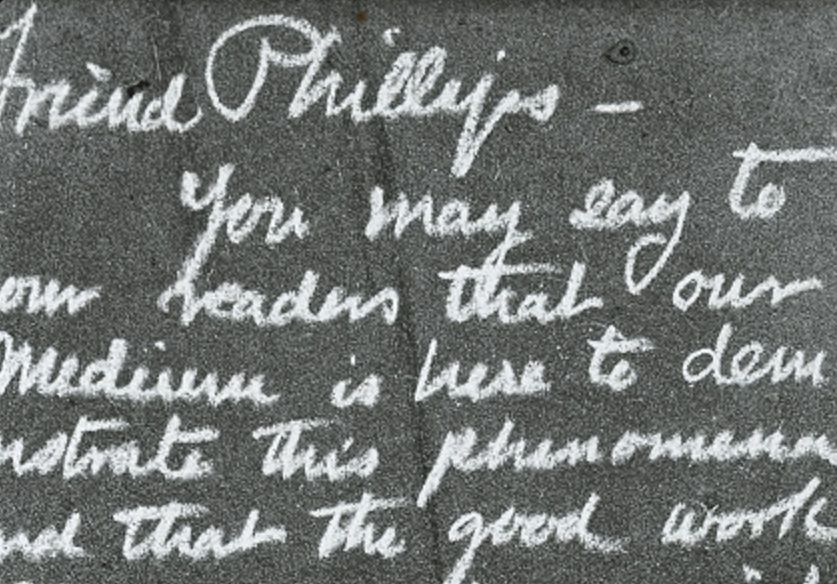 Friend Phillips —
You may say to
our readers that our
Medium is here to dem
nstrate this phenomenon
and that the good work